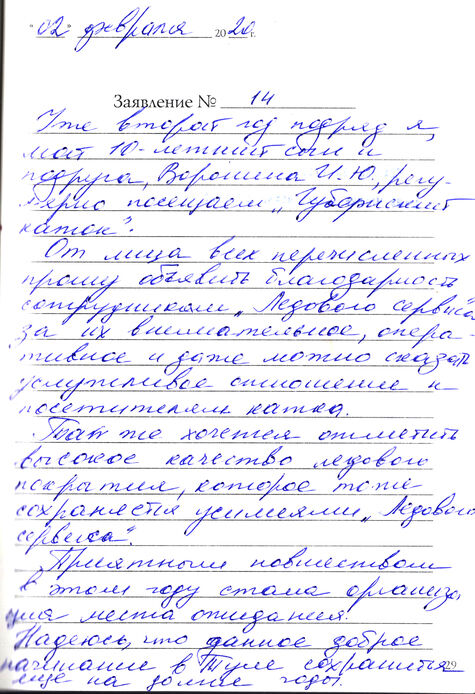 "02" февраля 2020 г.
Заявление № 14
Уже второй год подряд я,
мой 10-летний сын и
подруга, Воронина И.Ю., регу-
лярно посещаем „Губернский
каток".
От лица всех перечисленных
прошу объявить благодарность
сотрудникам „Ледового сервиса"
за их внимательное, опера-
тивное и даже можно сказать
услужливое отношение к
посетителям катка.
Так же хочется отметить
высокое качество ледового
покрытия, которое тоже
сохраняется усилиями „Ледового
сервиса".
Приятным новшеством
в этом году стала организа-
ция места ожидания.
Надеюсь, что данное доброе
начинание в Туле сохранится
еще на долгие годы.
29